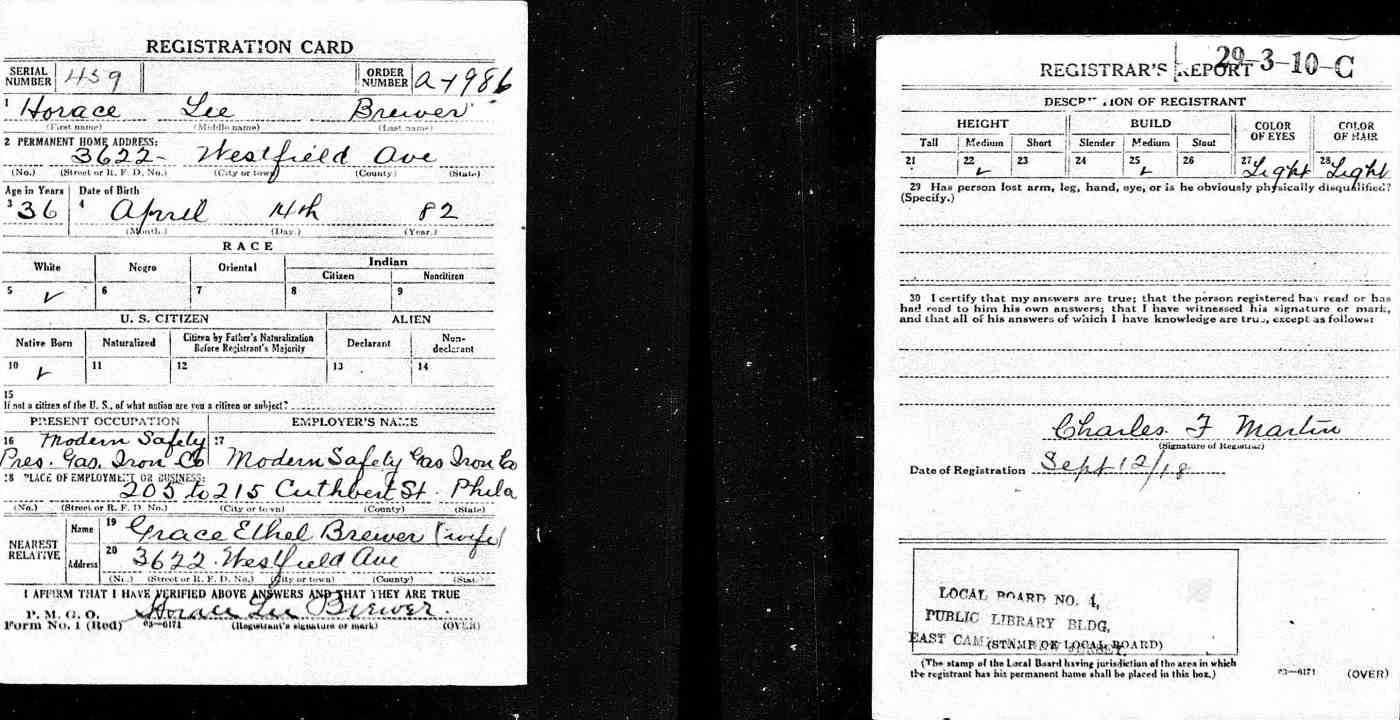 REGISTRATION CARD
SERIAL NUMBER 459 ORDER NUMBER A4986
1 Horace Lee Brewer
(First name) (Middle name) (Last name)
2 PERMANENT HOME ADDRESS:
3622- Westfield Ave
(No.) (Street or R. F. D. No.) (City or town) (County) (State)
Age in Years Date of Birth
3 36 4 April 14th 82
(Month.) (Day.) (Year.)
RACE
White Negro Oriental Indian
Citizen Noncitizen
5 ✓ 6 7 8 9
U. S. CITIZEN ALIEN
Native Born Naturalized Citizen by Father's Naturalization Before Registrant's Majority Declarant Non-declarant
10 ✓ 11 12 13 14
15
If not a citizen of the U. S., of what nation are you a citizen or subject?
PRESENT OCCUPATION EMPLOYER'S NAME
16 Modern Safely 17
Pres. Gas. Iron Co Modern Safely Gas Iron Co
18 PLACE OF EMPLOYMENT OR BUSINESS:
205 to 215 Cuthbert St. Phila
(No.) (Street or R. F. D. No.) (City or town) (County) (State)
NEAREST RELATIVE
Name 19 Grace Ethel Brewer (wife)
Address 20 3622 Westfield Ave
(No.) (Street or R. F. D. No.) (City or town) (County) (State)
I AFFIRM THAT I HAVE VERIFIED ABOVE ANSWERS AND THAT THEY ARE TRUE
P. M. G. O. Horace Lee Brewer.
Form No. 1 (Red) 03—6171 (Registrant's signature or mark) (OVER)
29-3-10-C
REGISTRAR'S REPORT
DESCRIPTION OF REGISTRANT
HEIGHT BUILD COLOR OF EYES COLOR OF HAIR
Tall Medium Short Slender Medium Stout
21 22 ✓ 23 24 25 ✓ 26 27 Light 28 Light
29 Has person lost arm, leg, hand, eye, or is he obviously physically disqualified?
(Specify.)
30 I certify that my answers are true; that the person registered has read or has
had read to him his own answers; that I have witnessed his signature or mark,
and that all of his answers of which I have knowledge are true, except as follows:
Charles. F Martin
(Signature of Registrar)
Date of Registration Sept 12/18
LOCAL BOARD NO. 4,
PUBLIC LIBRARY BLDG,
EAST CAMDEN, NEW JERSEY.
(STAMP OF LOCAL BOARD)
(The stamp of the Local Board having jurisdiction of the area in which
the registrant has his permanent home shall be placed in this box.)
03—6171 (OVER)